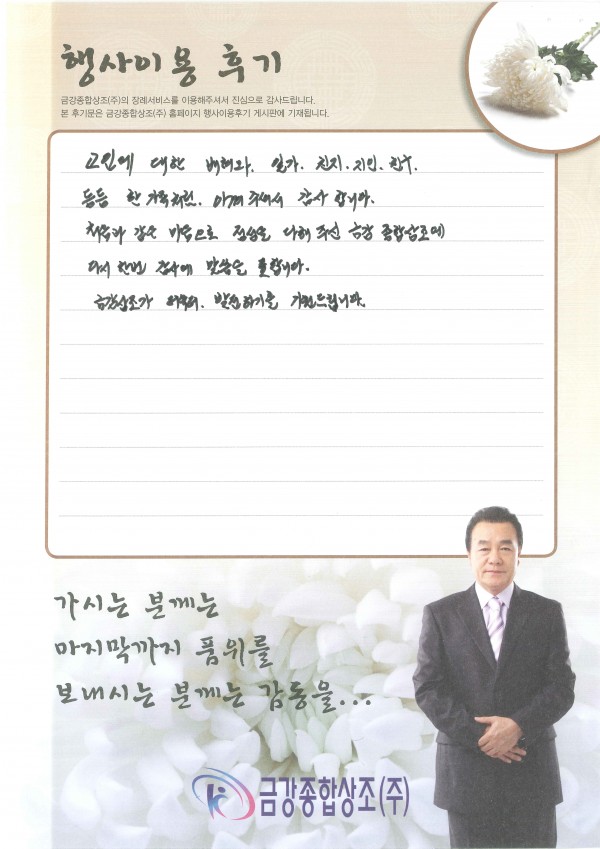 행사이용 후기
금강종합상조(주)의 장례서비스를 이용해주셔서 진심으로 감사드립니다.
본 후기문은 금강종합상조(주) 홈페이지 행사이용후기 게시판에 기재됩니다.
고인에 대한 배려와. 일가. 친지. 지인. 친구.
등등 한 가족처럼. 아껴 주셔서 감사 합니다.
처음과 같은 마음으로 정성을 다해 주신 금강 종합상조에
다시 한번 감사에 말씀을 올립니다.
금강상조가 발전하기를 기원드립니다.
가시는 분께는
마지막까지 품위를
보내시는 분께는 감동을...
금강종합상조(주)